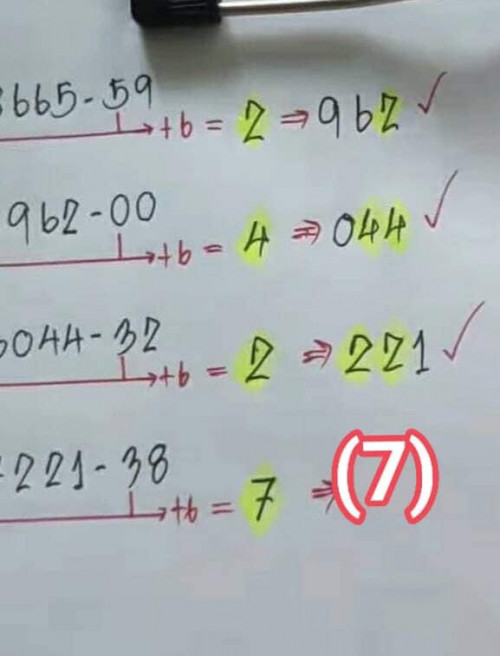 665-59
+6 = 2 ⇒ 962 ✓
962-00
+6 = 4 ⇒ 044 ✓
044-32
+6 = 2 ⇒ 221 ✓
221-38
+6 = 7 ⇒ (7)